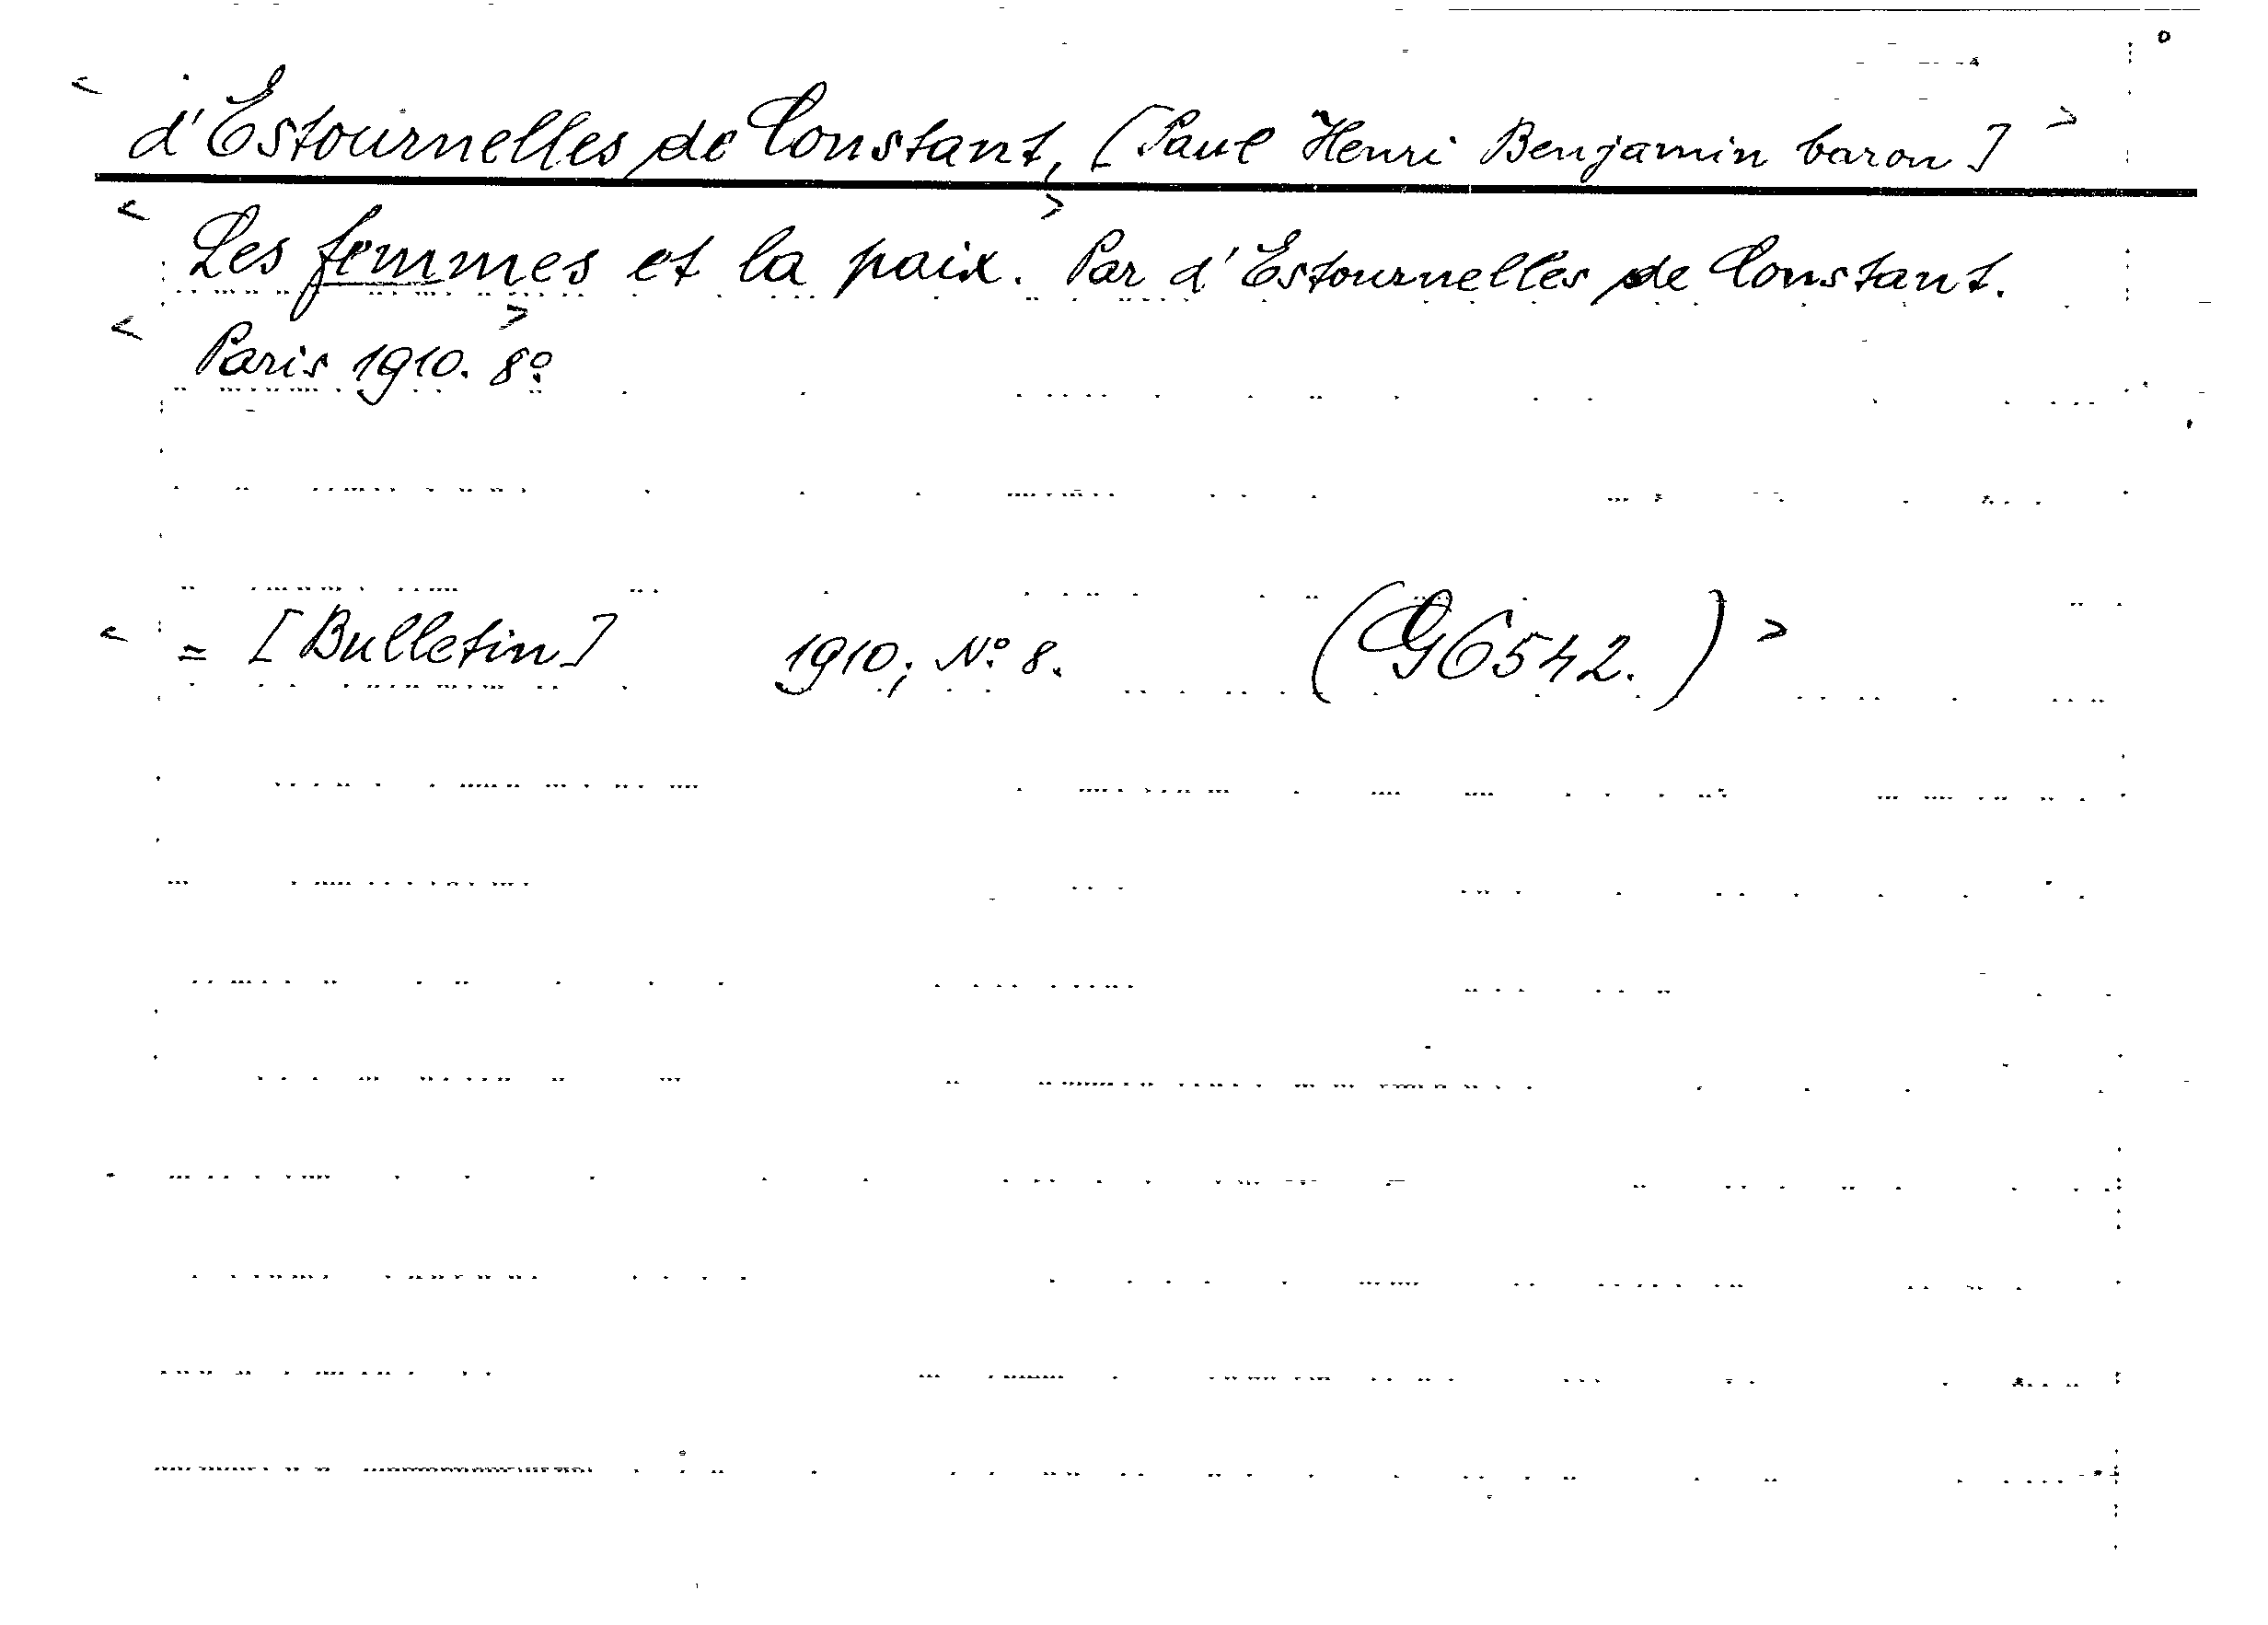 < d'Estournelles de Constant, [Paul Henri Benjamin baron] >
< Les femmes et la paix. > Par d'Estournelles de Constant.
< Paris 1910. > 8º.
< = [Bulletin] 1910; Nº 8. (G6542.) >